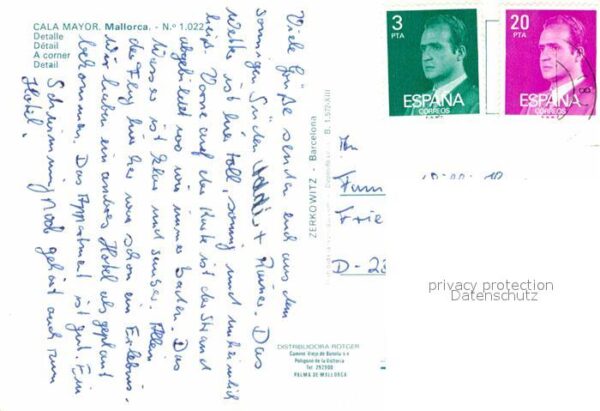 CALA MAYOR. Mallorca. - N.º 1.022
Detalle
Détail
A corner
Detail
Viele Grüße senden euch aus dem
sonnigen Süden + Rainer. Das
Wetter ist hier toll, sonnig und unheimlich
heiß. Vorne auf der Karte ist der Strand
abgebildet wo wir immer baden. Das
Wasser ist klar und sauber. Allein
der Flug hier her war schon ein Erlebnis.
Wir haben ein anderes Hotel als geplant
bekommen. Das Appartment ist gut. Ein
Swimming Pool gehört auch zum
Hotel.
ZERKOWITZ - Barcelona
B. 1.572-XIII
3
PTA
ESPAÑA
CORREOS
20
PTA
ESPAÑA
CORREOS
An
Fam
D-28
privacy protection
Datenschutz
DISTRIBUIDORA ROTGER
Camino Viejo de Buñola s/n
Polígono de la Victoria
Tel. 292900
PALMA DE MALLORCA